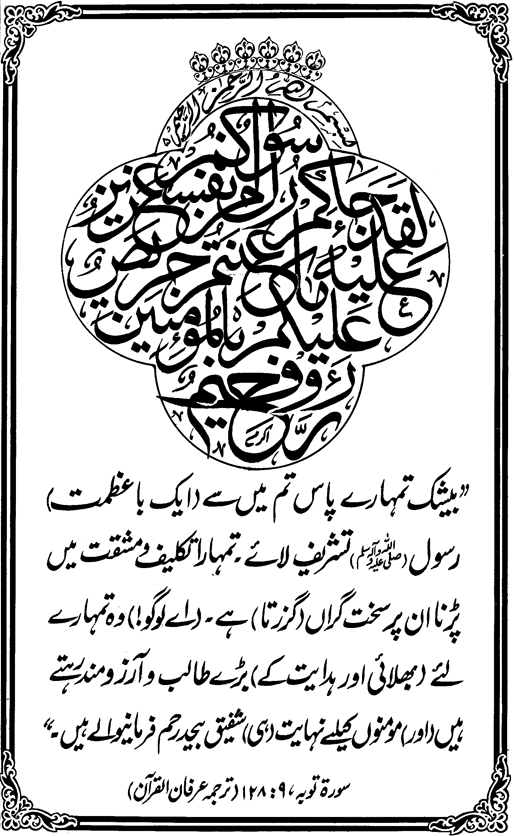 بسم اللہ الرحمن الرحیم
لقد جاءکم رسول من انفسکم عزیز
علیہ ما عنتم حریص
علیکم بالمؤمنین
رءوف رحیم
”بیشک تمہارے پاس تم میں سے (ایک باعظمت)
رسول (ﷺ) تشریف لائے۔ تمہارا تکلیف و مشقت میں
پڑنا ان پر سخت گراں (گزرتا) ہے۔ (اے لوگو!) وہ تمہارے
لئے (بھلائی اور ہدایت کے) بڑے طالب و آرزو مند رہتے
ہیں (اور) مومنوں کیلئے نہایت (ہی) شفیق بیحد رحم فرمانیوالے ہیں۔“
سورۃ توبہ، ۹: ۱۲۸ (ترجمہ عرفان القرآن)